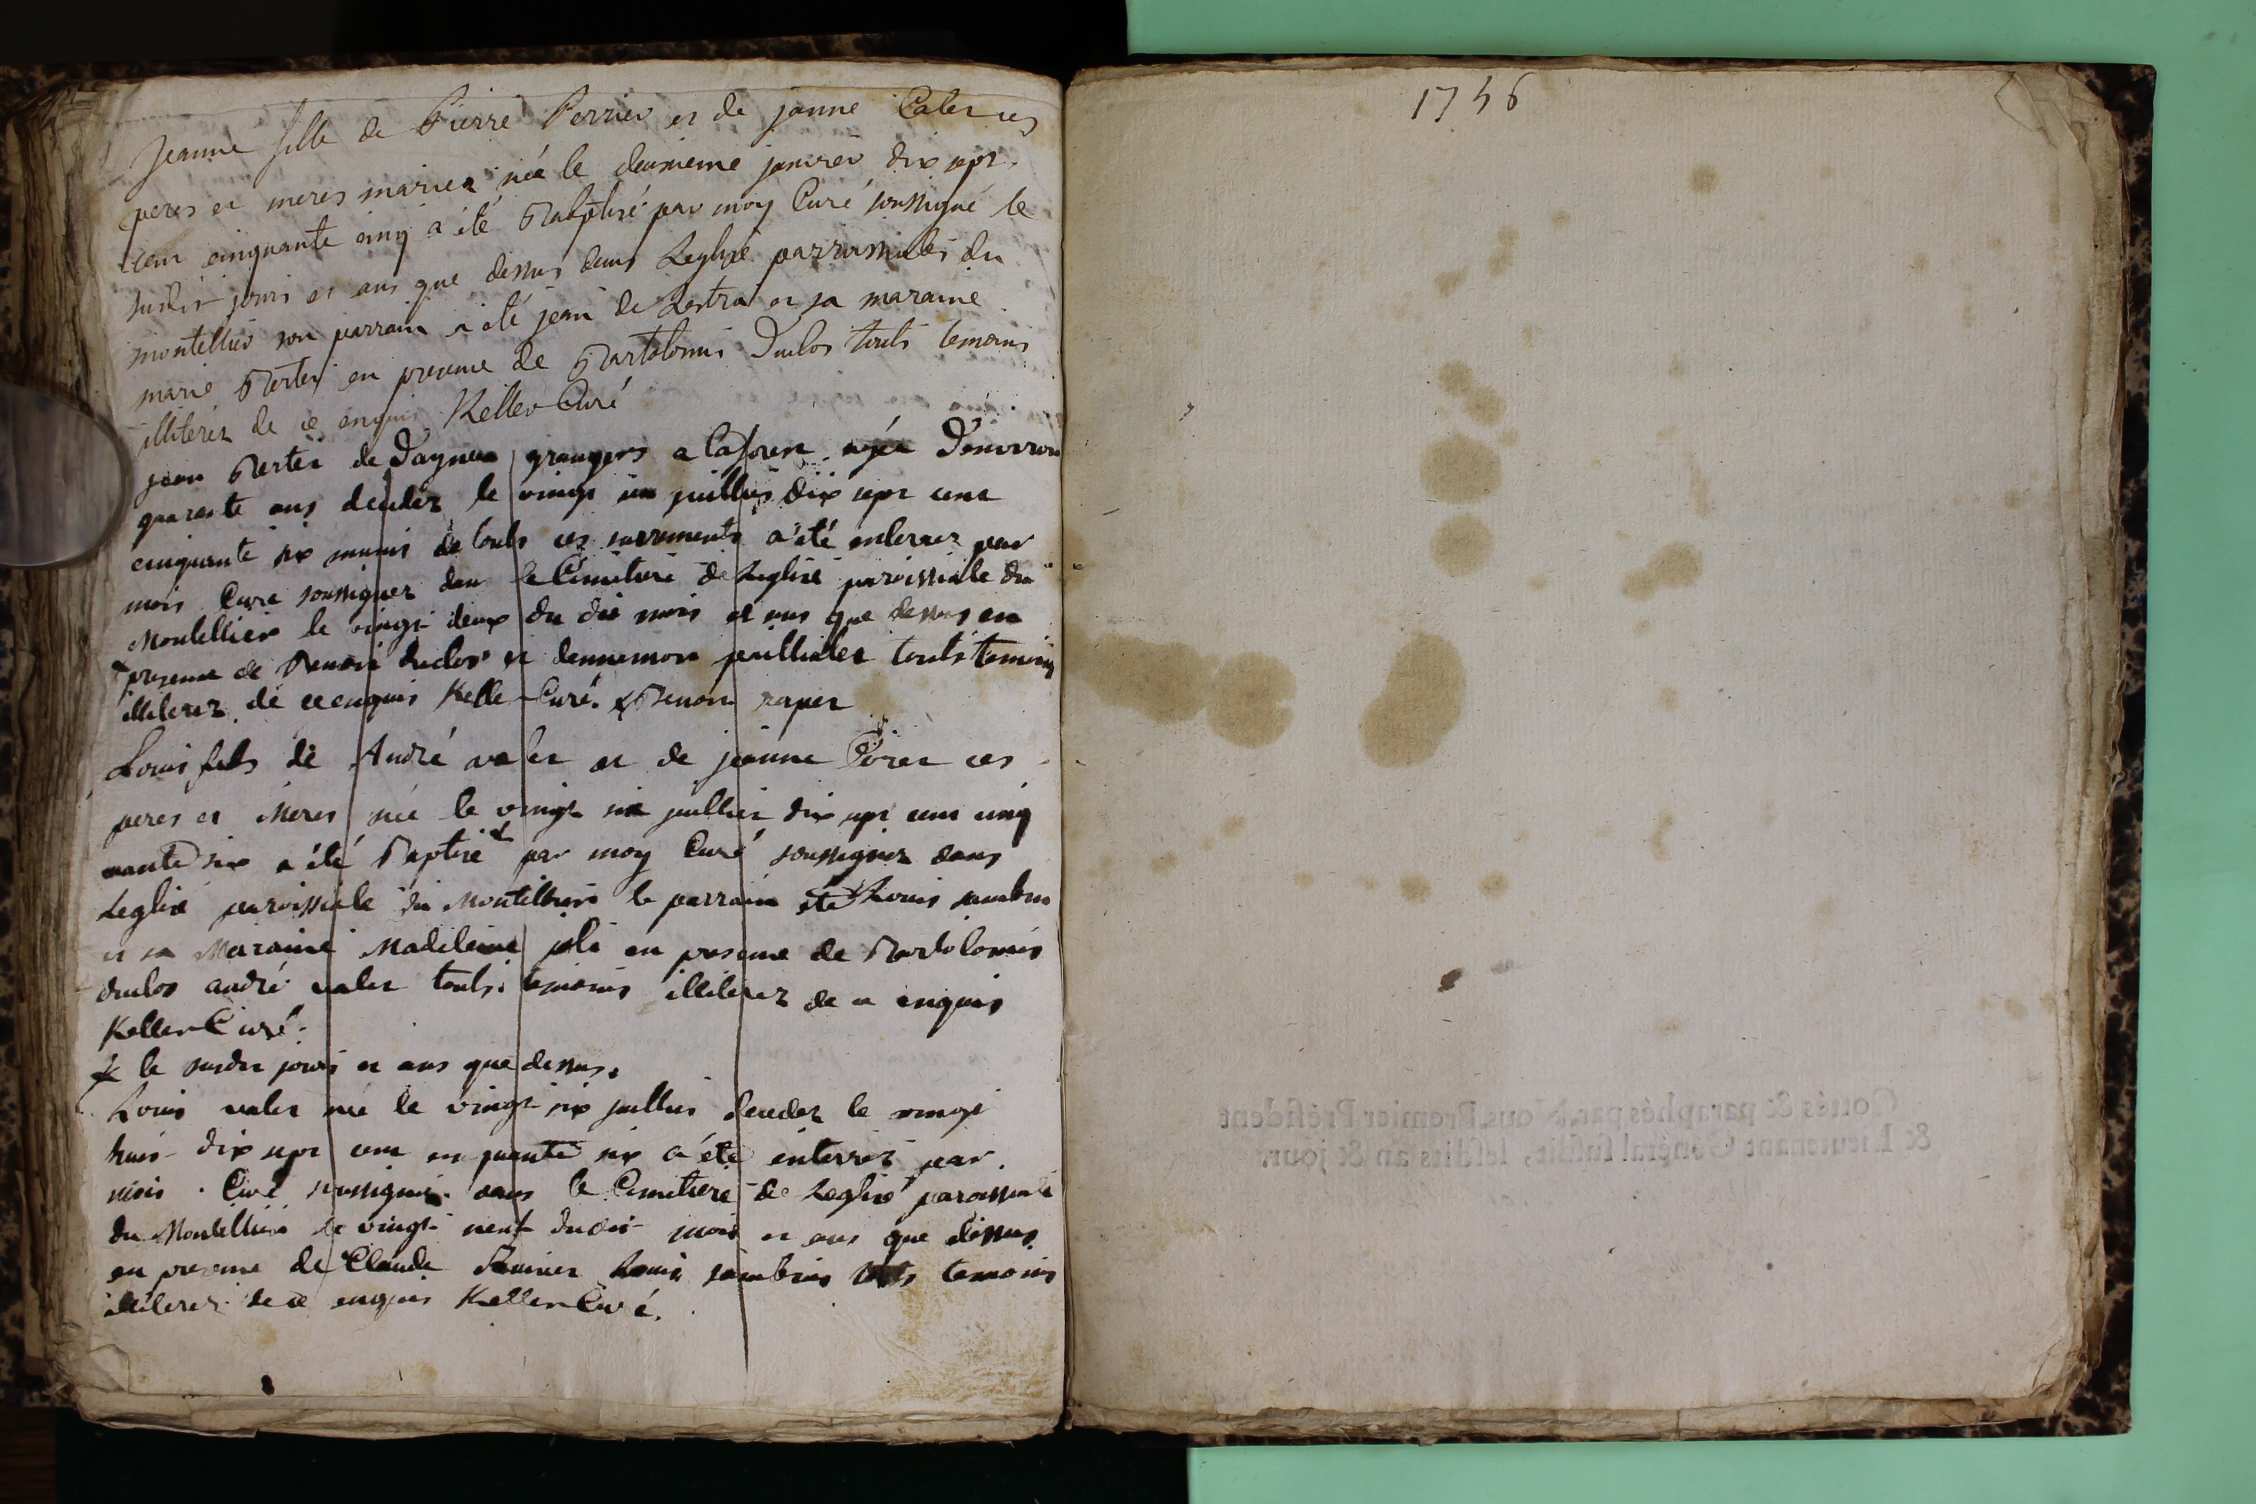 Jeanne fille de Pierre Perrier et de janne Calet ces
peres et meres mariez née le deusieme janvier dix sept
cent cinquante cinq a été Baptisé par moy Curé soussigné le
susdit jours et ans que dessus dans Leglise parrossiales du
montellier son parrain a été jean de Lestra et sa maraine
marie Berter en presence de Bartolomis Duclos touts temoins
illiterez de ce enquis Keller Curé
jean Berter de Dagneu grangers a Laforest agée Denvirron
quarente ans deceder le vingt un juillies dix sept cent
cinquante six munis de touts ces sacrements a été enterrez par
mois Cure soussignez dans le Cimetiere de Leglise paroissiale du
Montellier le vingt deux du dit mois et ans que dessus en
presence de Benoit duclos et touts temoins
illiterez de ce enquis Kelle Curé. Benoit
Louis fils de André valet et de jeanne ces
peres et Meres née le vingt six juillier dix sept cent cinq
uante six a été Baptisé par moy Curé soussignez dans
Leglise paroissiale du Montelliers le parrain été Louis
et sa Maraine Madeleine joli en presence de Bartolomis
duclos andré valet touts temoins illiterez de ce enquis
Keller Curé.
le susdit jours et ans que dessus.
Louis valet née le vingt six juillies deceder le vingt
huit dix sept cent cinquante six a été enterrez par
mois Curé soussignez dans le Cimetiere de Leglise paroissiale
du Montelliers le vingt neuf dudit mois et ans que dessus
en presence de Claude Louis touts temoins
illiterez de ce enquis Keller Curé.
1756
Cottés & paraphés par Nous Premier Président
& Lieutenant Général susdit, lesdits an & jour.